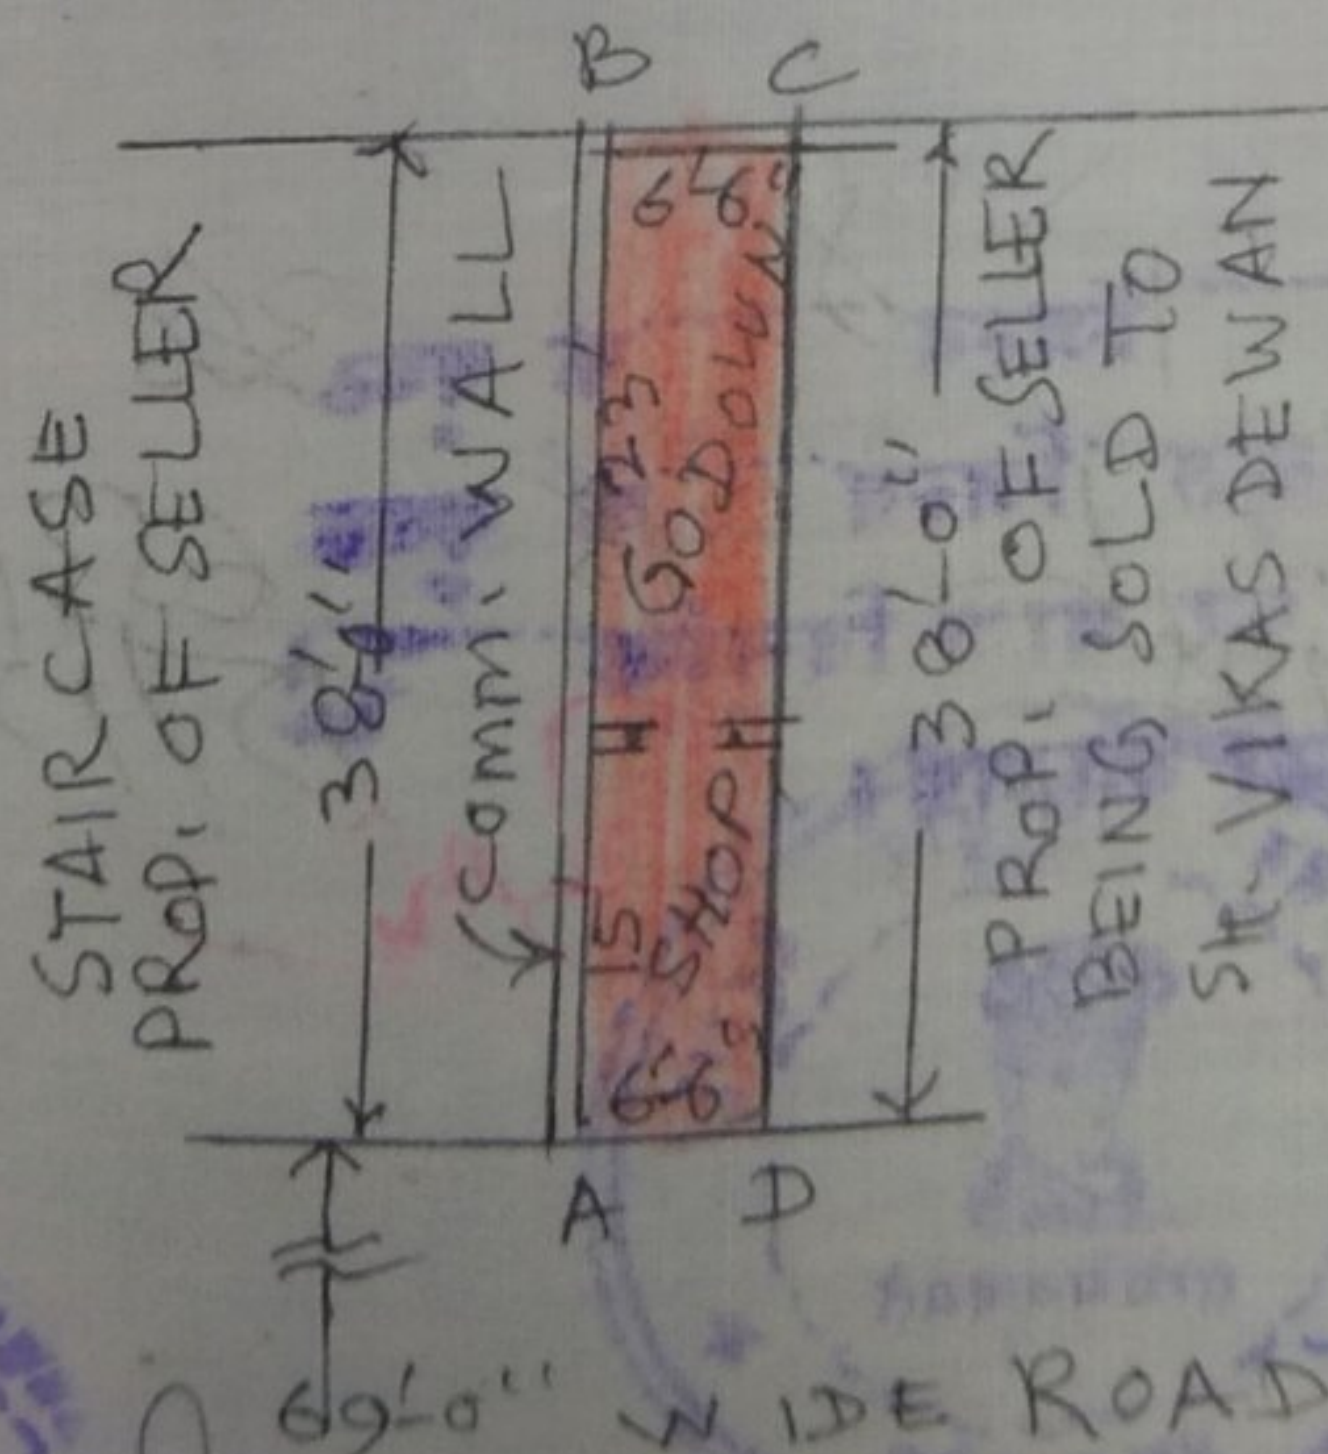 B C
6'-6"
STAIRCASE
PROP. OF SELLER
38'-0"
COMM. WALL
23
GODOWN
15
SHOP
6'-6"
38'-0"
PROP. OF SELLER
BEING SOLD TO
SH. VIKAS DEWAN
A D
69'-0" WIDE ROAD